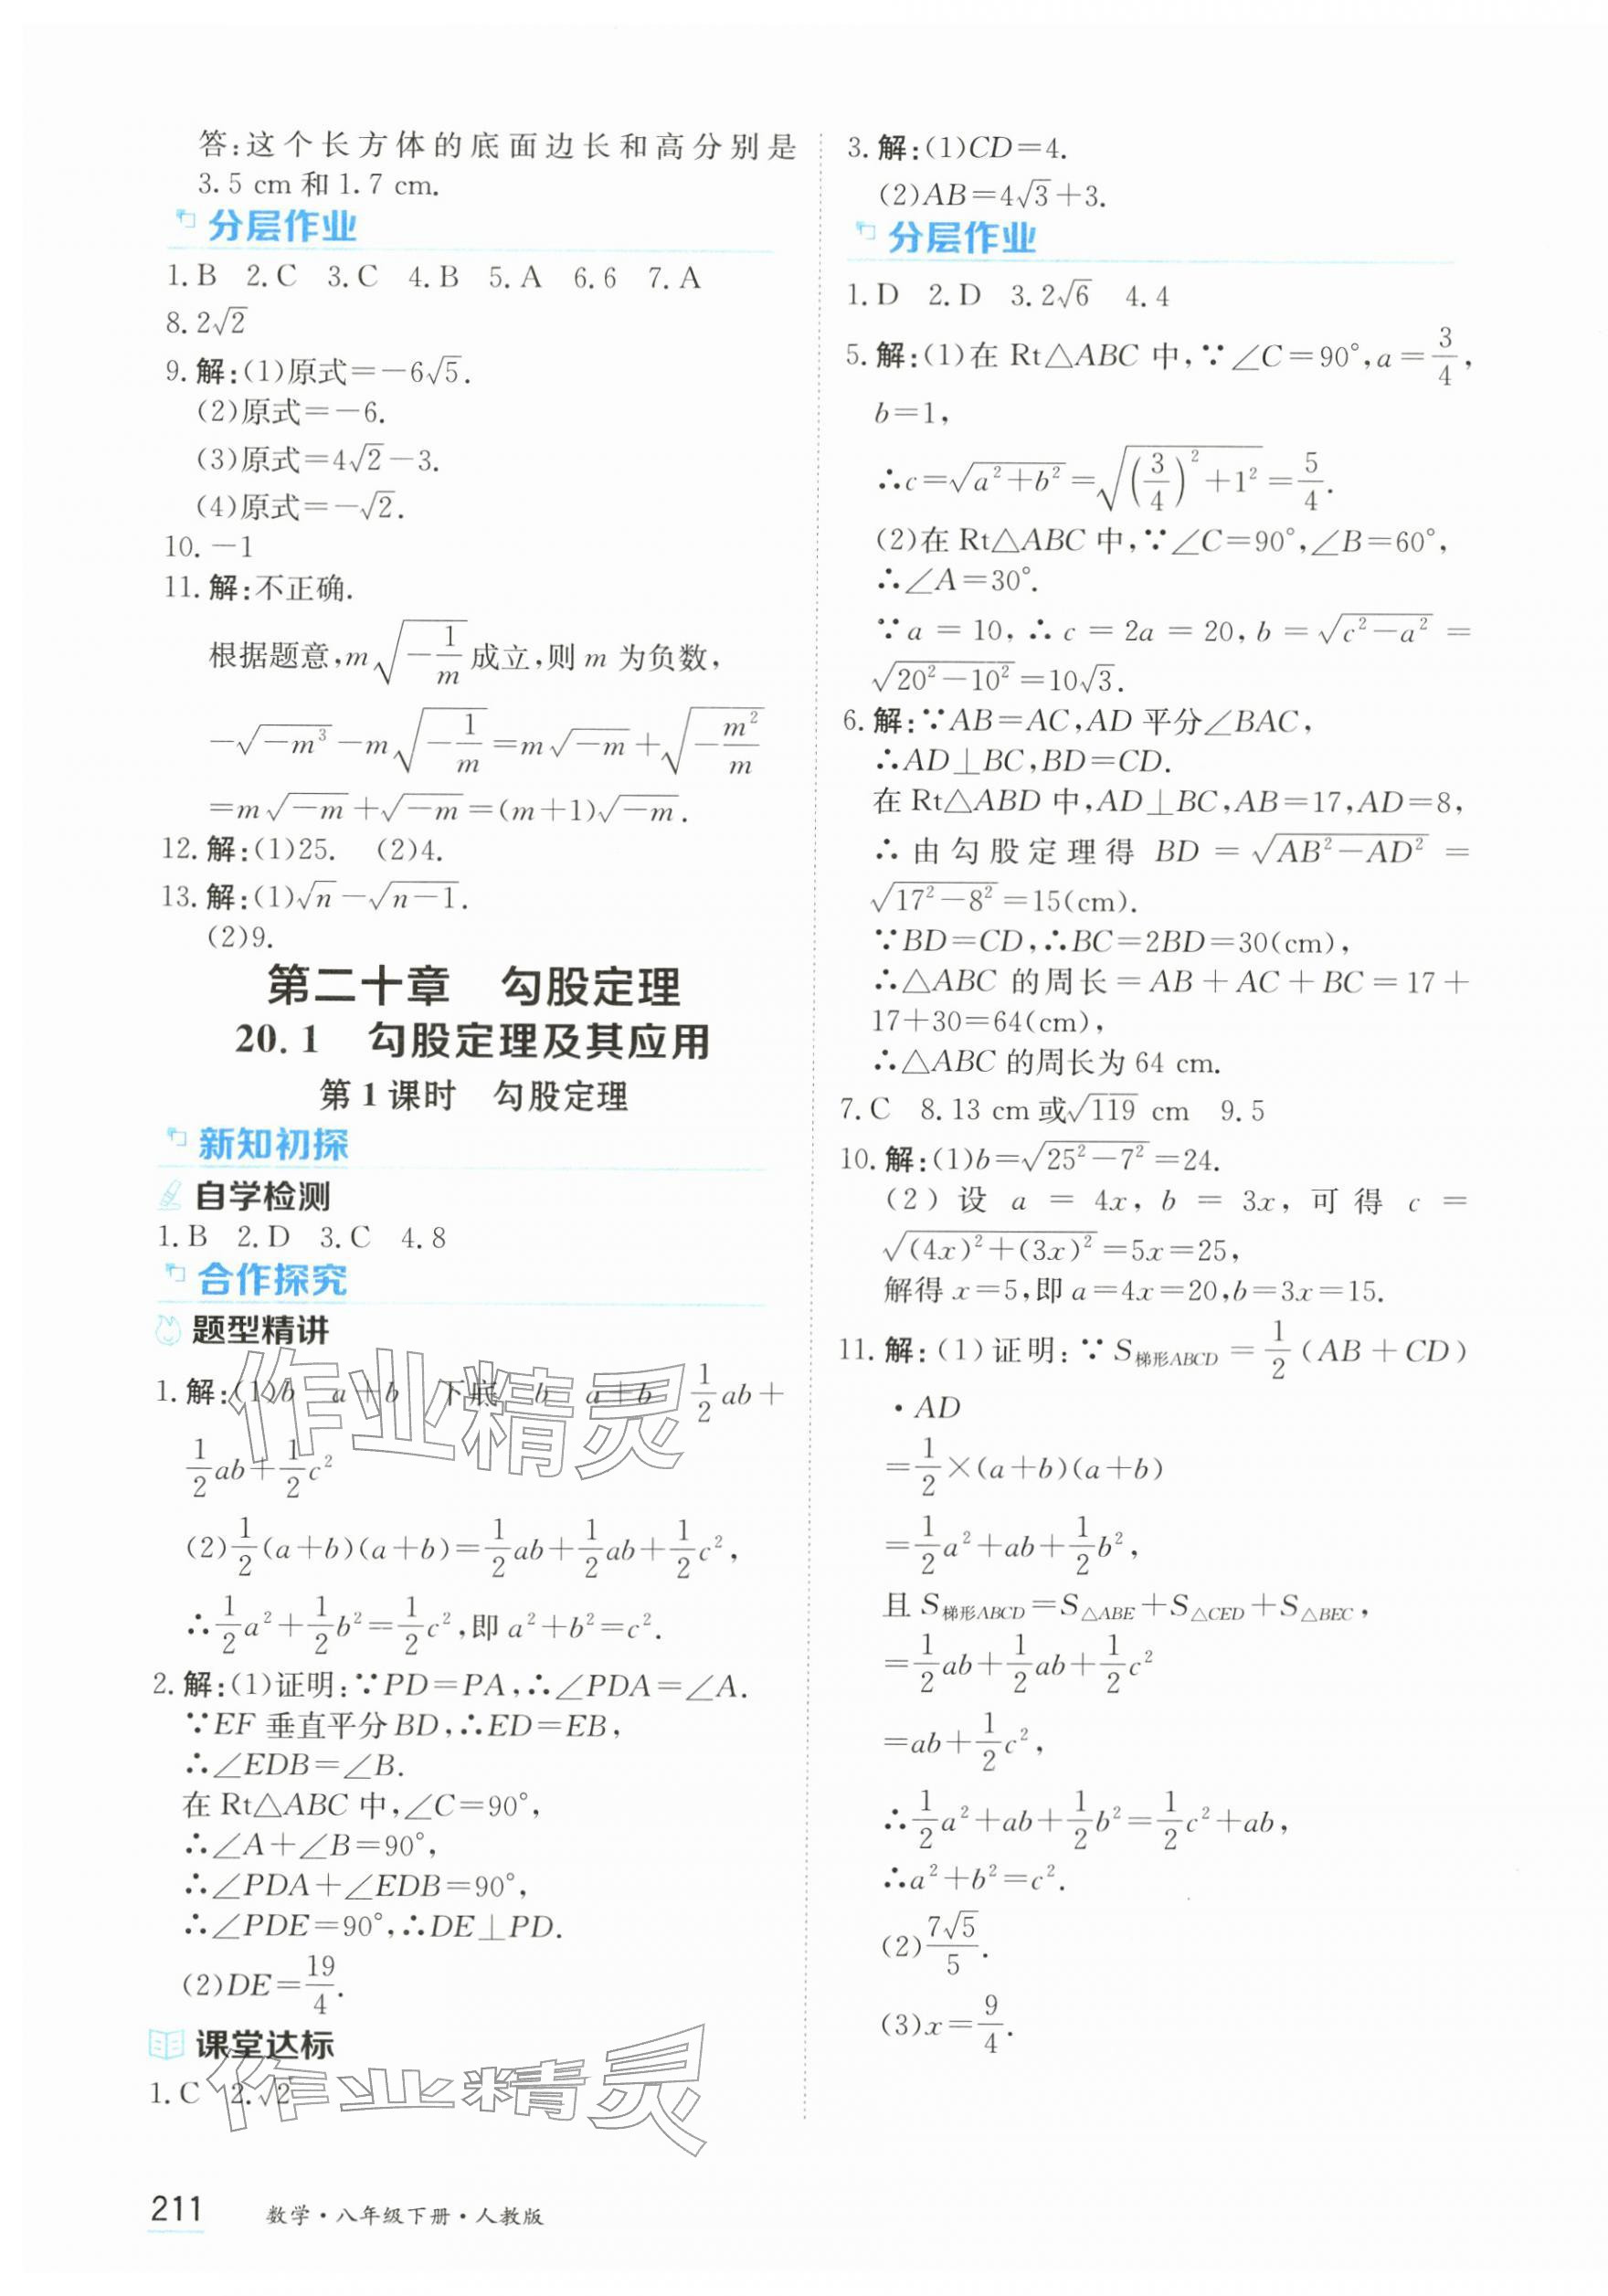 答:这个长方体的底面边长和高分别是
3.5 cm和1.7 cm.
分层作业
1.B 2.C 3.C 4.B 5.A 6.6 7.A
8.2√2
9.解:(1)原式=-6√5.
(2)原式=-6.
(3)原式=4√2-3.
(4)原式=-√2.
10.-1
11.解:不正确.
根据题意,m√(-1/m)成立,则m为负数,
-√(-m³)-m√(-1/m)=m√(-m)+√(-m²/m)
=m√(-m)+√(-m)=(m+1)√(-m).
12.解:(1)25. (2)4.
13.解:(1)√n-√(n-1).
(2)9.
第二十章 勾股定理
20.1 勾股定理及其应用
第1课时 勾股定理
新知初探
自学检测
1.B 2.D 3.C 4.8
合作探究
题型精讲
1.解:(1)b a+b 下底 b a+b 1/2ab+
1/2ab+1/2c²
(2)1/2(a+b)(a+b)=1/2ab+1/2ab+1/2c²,
∴1/2a²+1/2b²=1/2c²,即a²+b²=c².
2.解:(1)证明:∵PD=PA,∴∠PDA=∠A.
∵EF垂直平分BD,∴ED=EB,
∴∠EDB=∠B.
在Rt△ABC中,∠C=90°,
∴∠A+∠B=90°,
∴∠PDA+∠EDB=90°,
∴∠PDE=90°,∴DE⊥PD.
(2)DE=19/4.
课堂达标
1.C 2.√2
3.解:(1)CD=4.
(2)AB=4√3+3.
分层作业
1.D 2.D 3.2√6 4.4
5.解:(1)在Rt△ABC中,∵∠C=90°,a=3/4,
b=1,
∴c=√(a²+b²)=√((3/4)²+1²)=5/4.
(2)在Rt△ABC中,∵∠C=90°,∠B=60°,
∴∠A=30°.
∵a=10,∴c=2a=20,b=√(c²-a²)=
√(20²-10²)=10√3.
6.解:∵AB=AC,AD平分∠BAC,
∴AD⊥BC,BD=CD.
在Rt△ABD中,AD⊥BC,AB=17,AD=8,
∴由勾股定理得BD=√(AB²-AD²)=
√(17²-8²)=15(cm).
∵BD=CD,∴BC=2BD=30(cm),
∴△ABC的周长=AB+AC+BC=17+
17+30=64(cm),
∴△ABC的周长为64 cm.
7.C 8.13 cm或√119 cm 9.5
10.解:(1)b=√(25²-7²)=24.
(2)设a=4x,b=3x,可得c=
√((4x)²+(3x)²)=5x=25,
解得x=5,即a=4x=20,b=3x=15.
11.解:(1)证明:∵S梯形ABCD=1/2(AB+CD)
·AD
=1/2×(a+b)(a+b)
=1/2a²+ab+1/2b²,
且S梯形ABCD=S△ABE+S△CED+S△BEC,
=1/2ab+1/2ab+1/2c²
=ab+1/2c²,
∴1/2a²+ab+1/2b²=1/2c²+ab,
∴a²+b²=c².
(2)7√5/5.
(3)x=9/4.
作业精灵
作业精灵
211 数学·八年级下册·人教版